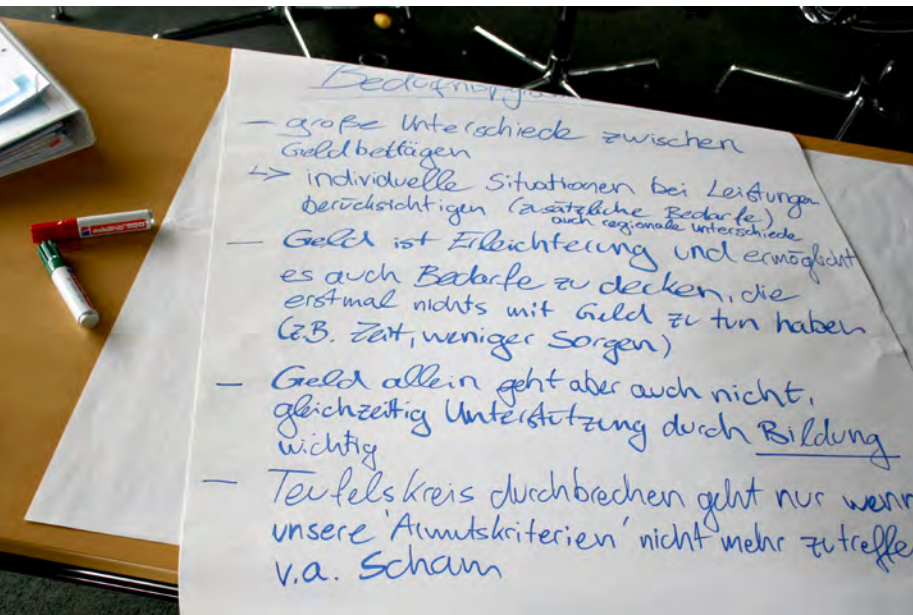 - große Unterschiede zwischen
Geldbeträgen
↳ individuelle Situationen bei Leistungen
berücksichtigen (zusätzliche Bedarfe)
auch regionale Unterschiede
- Geld ist Erleichterung und ermöglicht
es auch Bedarfe zu decken, die
erstmal nichts mit Geld zu tun haben
(z.B. Zeit, weniger Sorgen)
- Geld allein geht aber auch nicht,
gleichzeitig Unterstützung durch Bildung
wichtig
- Teufelskreis durchbrechen geht nur wenn
unsere 'Armutskriterien' nicht mehr zutreffe
v.a. Scham